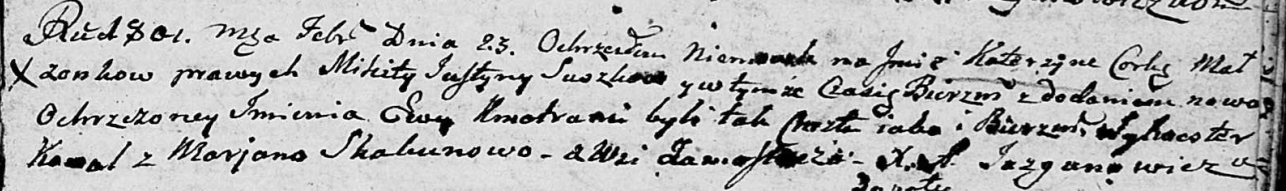 Ru 1801. Mca Febr Dnia 23. Ochrzciłem Niemowle na Jmie Katerzyne Corkę Mał
X żonkow prawych Mikity Justyny Suszkow y w tymże Czasie Bierzm z dodaniem nowo
Ochrzczoney Jmienia Ewy Kmotrami byli tak Chrztu iako i Bierzm
Kowal z Marjano Skakunowo - a Wsi - X. Jazganowicz